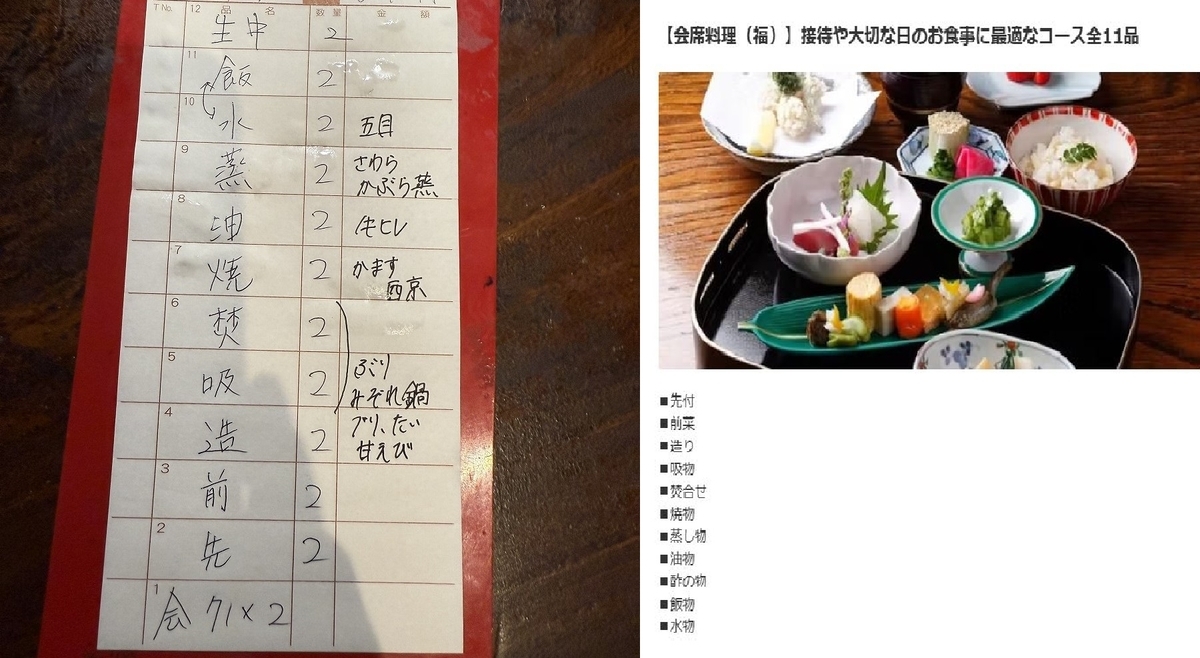 T No.
12 品 名
数 量
金 額
生中 2
11
飯 2
10
水 2 五目
9
蒸 2 さわら
かぶら蒸
8
油 2 牛ヒレ
7
焼 2 かます
西京
6
焚 2
5
吸 2 ぶり
みぞれ鍋
4
造 2 ブリ、たい
甘えび
3
前 2
2
先 2
1
会 ×2
【会席料理（福）】接待や大切な日のお食事に最適なコース全11品
■先付
■前菜
■造り
■吸物
■焚合せ
■焼物
■蒸し物
■油物
■酢の物
■飯物
■水物